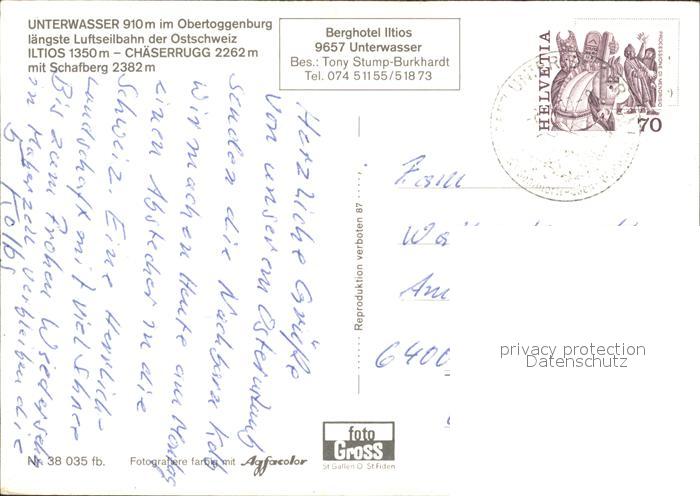 UNTERWASSER 910 m im Obertoggenburg
längste Luftseilbahn der Ostschweiz
ILTIOS 1350 m – CHÄSERRUGG 2262 m
mit Schafberg 2382 m
Berghotel Iltios
9657 Unterwasser
Bes.: Tony Stump-Burkhardt
Tel. 074 5 11 55 / 5 18 73
HELVETIA
PROCESSIONE DI MENDRISIO
70
Herzliche Grüße
Von unserem Osterurlaub
senden die Nachbarn Kolb
Wir machen Heute am Montag
einen Abstecher in die
Schweiz. Eine Herrlich-
Landschaft mit viel Schnee
Bis zum Frohen Wiedersehn
in verbleiben die
Kolbs
Reproduktion verboten 87
Frau
Am
6400
privacy protection
Datenschutz
foto
Gross
St Gallen O St Fiden
Nr. 38 035 fb.
Fotografiere farbig mit Agfacolor